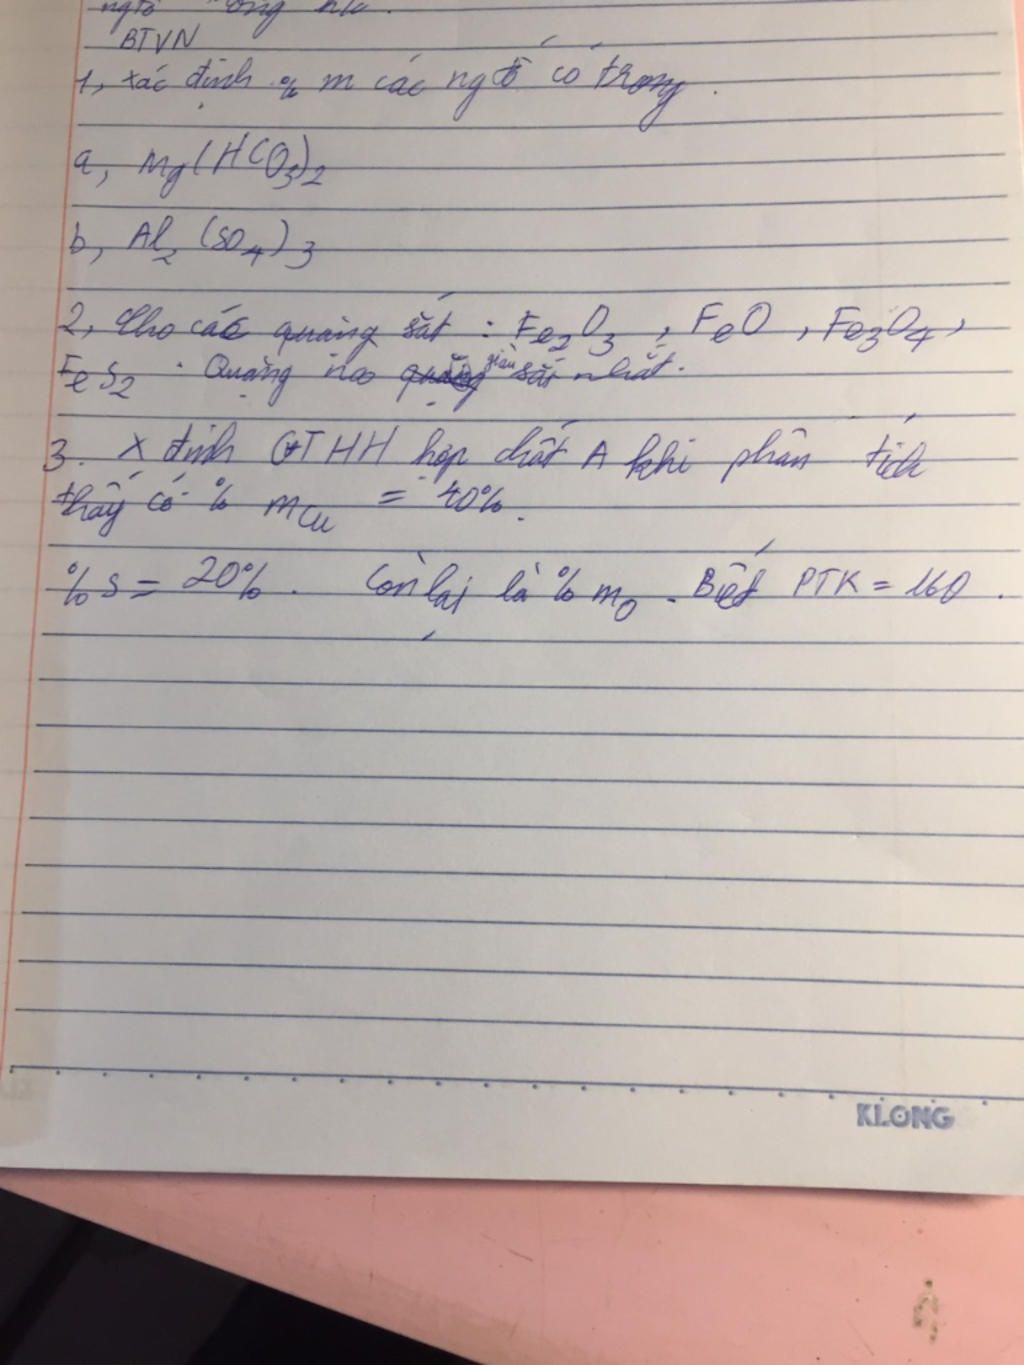 ngtố
BTVN
1, xác định % m các ngtố có trong.
a, Mg(HCO3)2
b, Al2(SO4)3
2, Cho các quặng sắt : Fe2O3, FeO, Fe3O4,
FeS2. Quặng nào giàu sắt nhất.
3. X định CTHH hợp chất A khi phân tích
thấy có % mCu = 40%.
%S = 20%. Còn lại là % mO. Biết PTK = 160.
KLONG